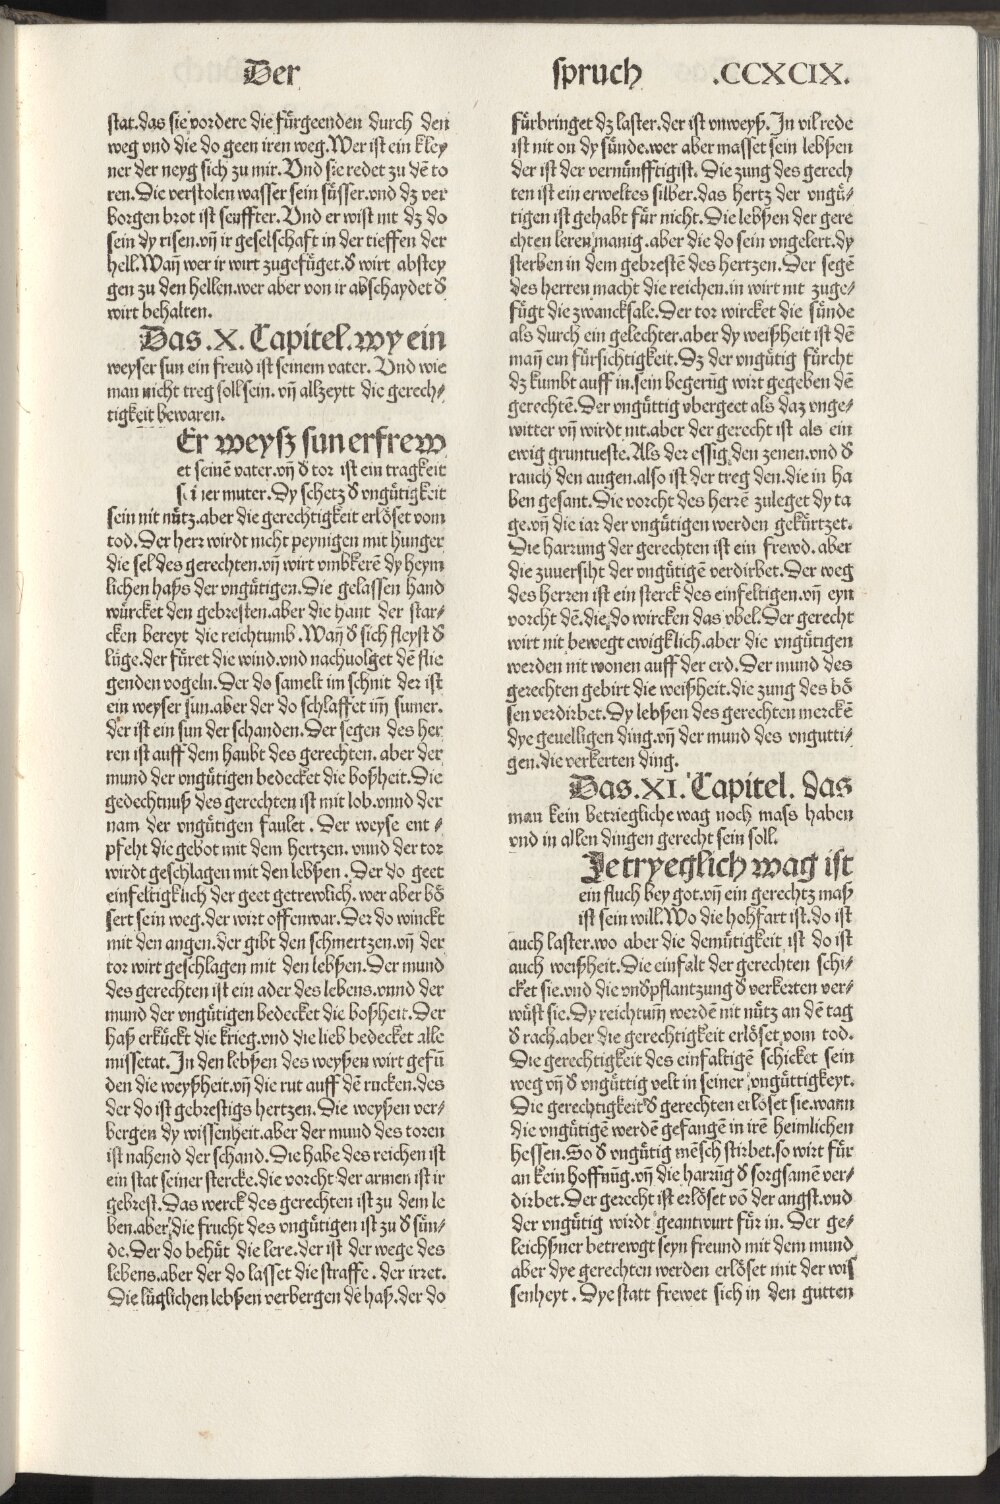 Der
spruch .CCXCIX.
stat.das sie vordere die fürgeenden durch den
weg vnd die do geen iren weg.Wer ist ein kley
ner der neyg sich zu mir.Vnd sie redet zu dē to
ren.Die verstolen wasser sein süsser.vnd dz ver
borgen brot ist senffter.Vnd er wist nit dz do
sein dy risen.vñ ir geselschaft in der tieffen der
hell.Wañ wer ir wirt zugefüget.ď wirt abstey
gen zu den hellen.wer aber von ir abschaydet ď
wirt behalten.
Das .X. Capitel.wy ein
weyser sun ein freud ist seinem vater. Vnd wie
man nicht treg soll sein. vñ allzeytt die gerech⸗
tigkeit bewaren.
Er weysz sun erfrew
et seinē vater.vñ ď tor ist ein tragkeit
seiner muter.Dy schetz ď vngütigkeit
sein nit nütz.aber die gerechtigkeit erlöset vom
tod.Der herr wirdt nicht peynigen mit hunger
die sel des gerechten.vñ wirt vmbkerē dy heym
lichen haßs der vngütigen.Die gelassen hand
würcket den gebresten.aber die hant der star⸗
cken bereyt die reichtumb.Wañ ď sich fleyst ď
lüge.der füret die wind.vnd nachuolget dē flie
genden vogeln.Der do samelt im schnit der ist
ein weyser sun.aber der do schlaffet im̄ sumer.
der ist ein sun der schanden.Der segen des her
ren ist auff dem haubt des gerechten. aber der
mund der vngütigen bedecket die boßheit.Die
gedechtnuß des gerechten ist mit lob.vnnd der
nam der vngütigen faulet . Der weyse ent ⸗
pfeht die gebot mit dem hertzen. vnnd der tor
wirdt geschlagen mit den lebßen . Der do geet
einfeltigklich der geet getrewlich. wer aber bö
sert sein weg.der wirt offenwar. Der do winckt
mit den augen.der gibt den schmertzen.vñ der
tor wirt geschlagen mit den lebßen.Der mund
des gerechten ist ein ader des lebens.vnnd der
mund der vngütigen bedecket die boßheit.Der
haß erkückt die krieg.vnd die lieb bedecket alle
missetat.In den lebßen des weyßen wirt gefū
den die weyßheit.vñ die rut auff dē rucken.des
der do ist gebrestigs hertzen.Die weyßen ver⸗
bergen dy wissenheit.aber der mund des toren
ist nahend der schand. Die habe des reichen ist
ein stat seiner stercke.die vorcht der armen ist ir
gebrest.Das werck des gerechten ist zu dem le
ben.aber die frucht des vngütigen ist zu ď sün⸗
de.Der do behüt die lere.der ist der wege des
lebens.aber der do lasset die straffe . der irret.
Die lüglichen lebßen verbergen dē haß.der do
fürbringet dz laster.der ist vnweyß.In vil rede
ist nit on dy sünde.wer aber masset sein lebßen
der ist der vernünfftigist. Die zung des gerech
ten ist ein erweltes silber.das hertz der vngü⸗
tigen ist gehabt für nicht.Die lebßen der gere
chten leren manig.aber die do sein vngelert.dy
sterben in dem gebrestē des hertzen.Der segē
des herren macht die reichen.in wirt nit zuge⸗
fügt die zwancksale.Der tor wircket die sünde
als durch ein gelechter.aber dy weißheit ist dē
mañ ein fürsichtigkeit.Dz der vngütig fürcht
dz kumbt auff in.sein begerūg wirt gegeben dē
gerechtē.Der vngüttig vbergeet als daz vnge⸗
witter vñ wirdt nit.aber der gerecht ist als ein
ewig gruntueste.Als der essig den zenen.vnd ď
rauch den augen.also ist der treg den.die in ha
ben gesant.Die vorcht des herrē zuleget dy ta
ge.vñ die iar der vngütigen werden gekürtzet.
Die harrung der gerechten ist ein frewd. aber
die zuuersiht der vngütigē verdirbet.Der weg
des herren ist ein sterck des einfeltigen.vñ eyn
vorcht dē.die do wircken das vbel.Der gerecht
wirt nit bewegt ewigklich.aber die vngütigen
werden nit wonen auff der erd. Der mund des
gerechten gebirt die weißheit.die zung des bö
sen verdirbet.Dy lebßen des gerechten merckē
dye geuelligen ding.vñ der mund des vngutti⸗
gen.die verkerten ding.
Das.XI.Capitel. das
man kein betriegliche wag noch mass haben
vnd in allen dingen gerecht sein soll.
Betryeglich wag ist
ein fluch bey got.vñ ein gerechtz maß
ist sein will.Wo die hohfart ist.do ist
auch laster.wo aber die demütigkeit ist do ist
auch weißheit.Die einfalt der gerechten schi⸗
cket sie.vnd die vnďpflantzung ď verkerten ver⸗
wüst sie.Dy reichtum̄ werdē nit nütz an dē tag
ď rach.aber die gerechtigkeit erlöset vom tod.
Die gerechtigkeit des einfaltigē schicket sein
weg vñ ď vngüttig velt in seiner vngüttigkeyt.
Die gerechtigkeit ď gerechten erlöset sie.wann
die vngütigē werdē gefangē in irē heimlichen
hessen.So ď vngütig mēsch stirbet.so wirt für
an kein hoffnūg.vñ die harrūg ď sorgsamē ver⸗
dirbet.Der gerecht ist erlöset vō der angst.vnd
der vngütig wirdt geantwurt für in. Der ge⸗
leichßner betrewgt seyn freund mit dem mund
aber dye gerechten werden erlöset mit der wis
senheyt . Dye statt frewet sich in den gutten